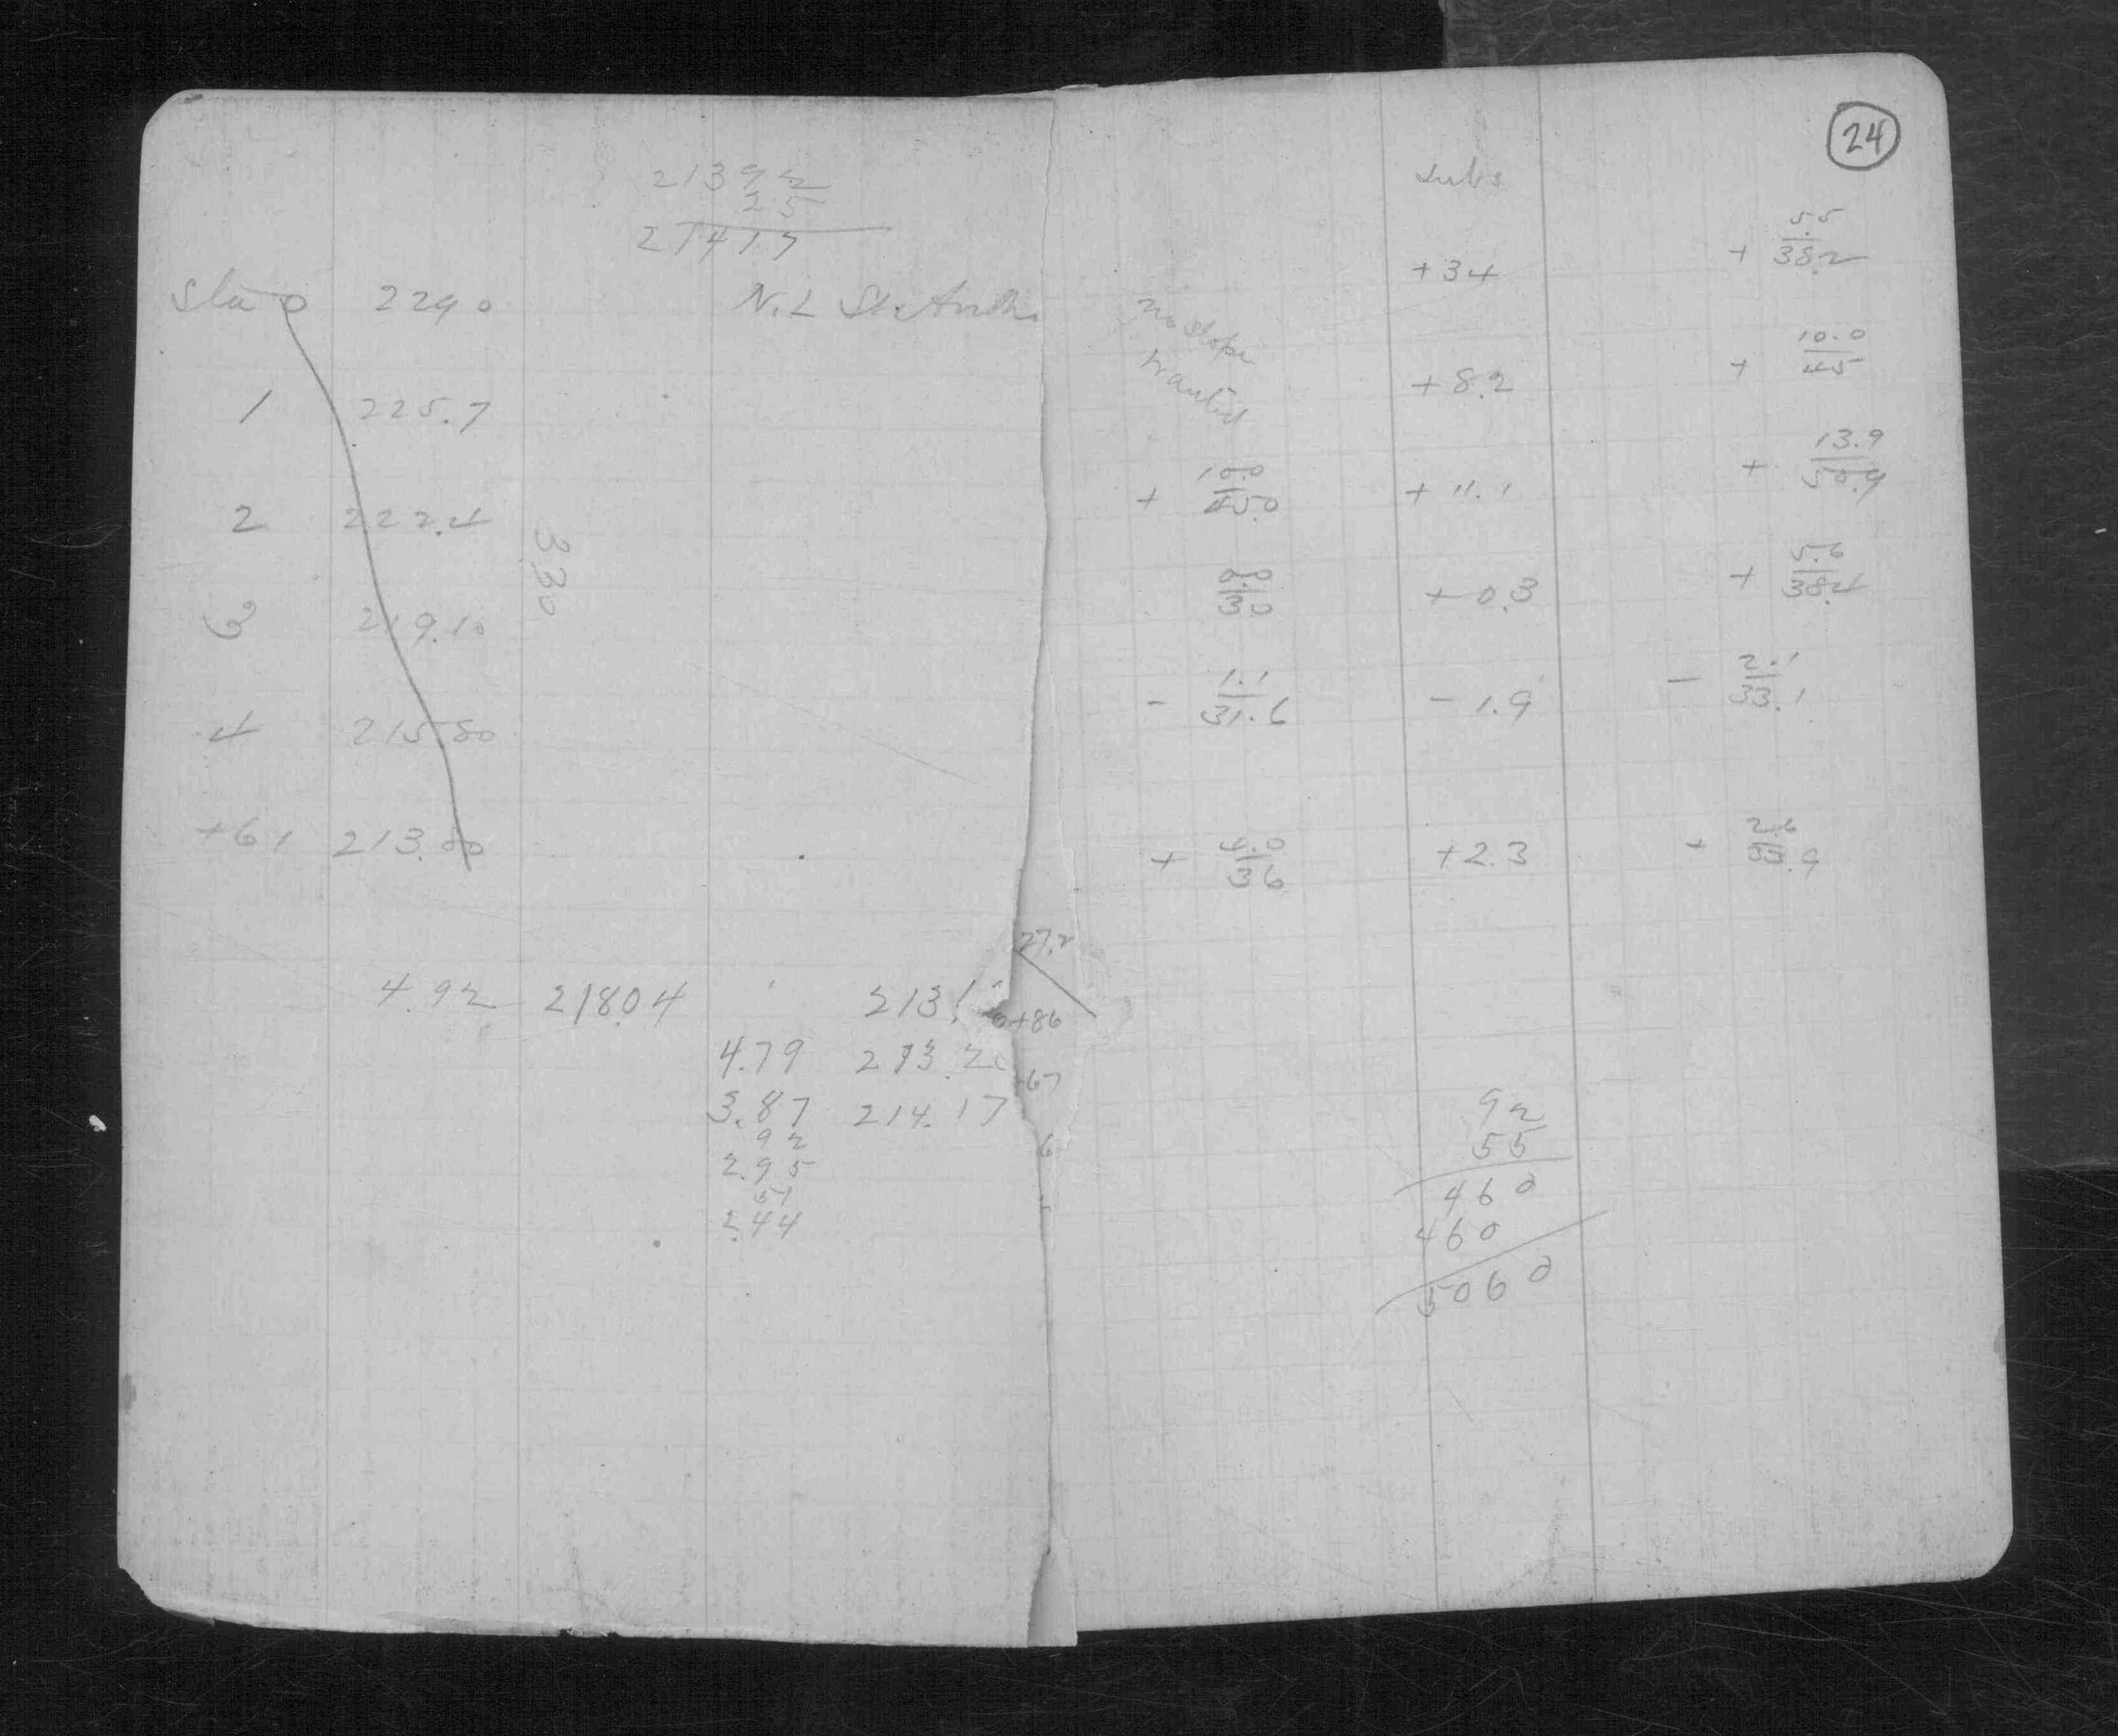 21392
25
21417
Sta 0 229 0 N.L St. Anth.
1 225.7
2 222.4
3 219.10
3.30
4 215.80
+61 213.80
4.92 218.04 213.1
4.79 213.2
3.87 214.17
92
2.95
51
2.44
27.2
+86
67
6
24
subs
+34 + 5.5/38.2
no slope
wanted
+8.2 + 10.0/45
+ 10.0/45.0 +11.1 + 13.9/50.9
0.0/30 +0.3 + 5.6/38.4
- 1.1/31.6 -1.9 - 2.1/33.1
+ 4.0/36 +2.3 + 2.6/33.9
92
55
460
460
5060